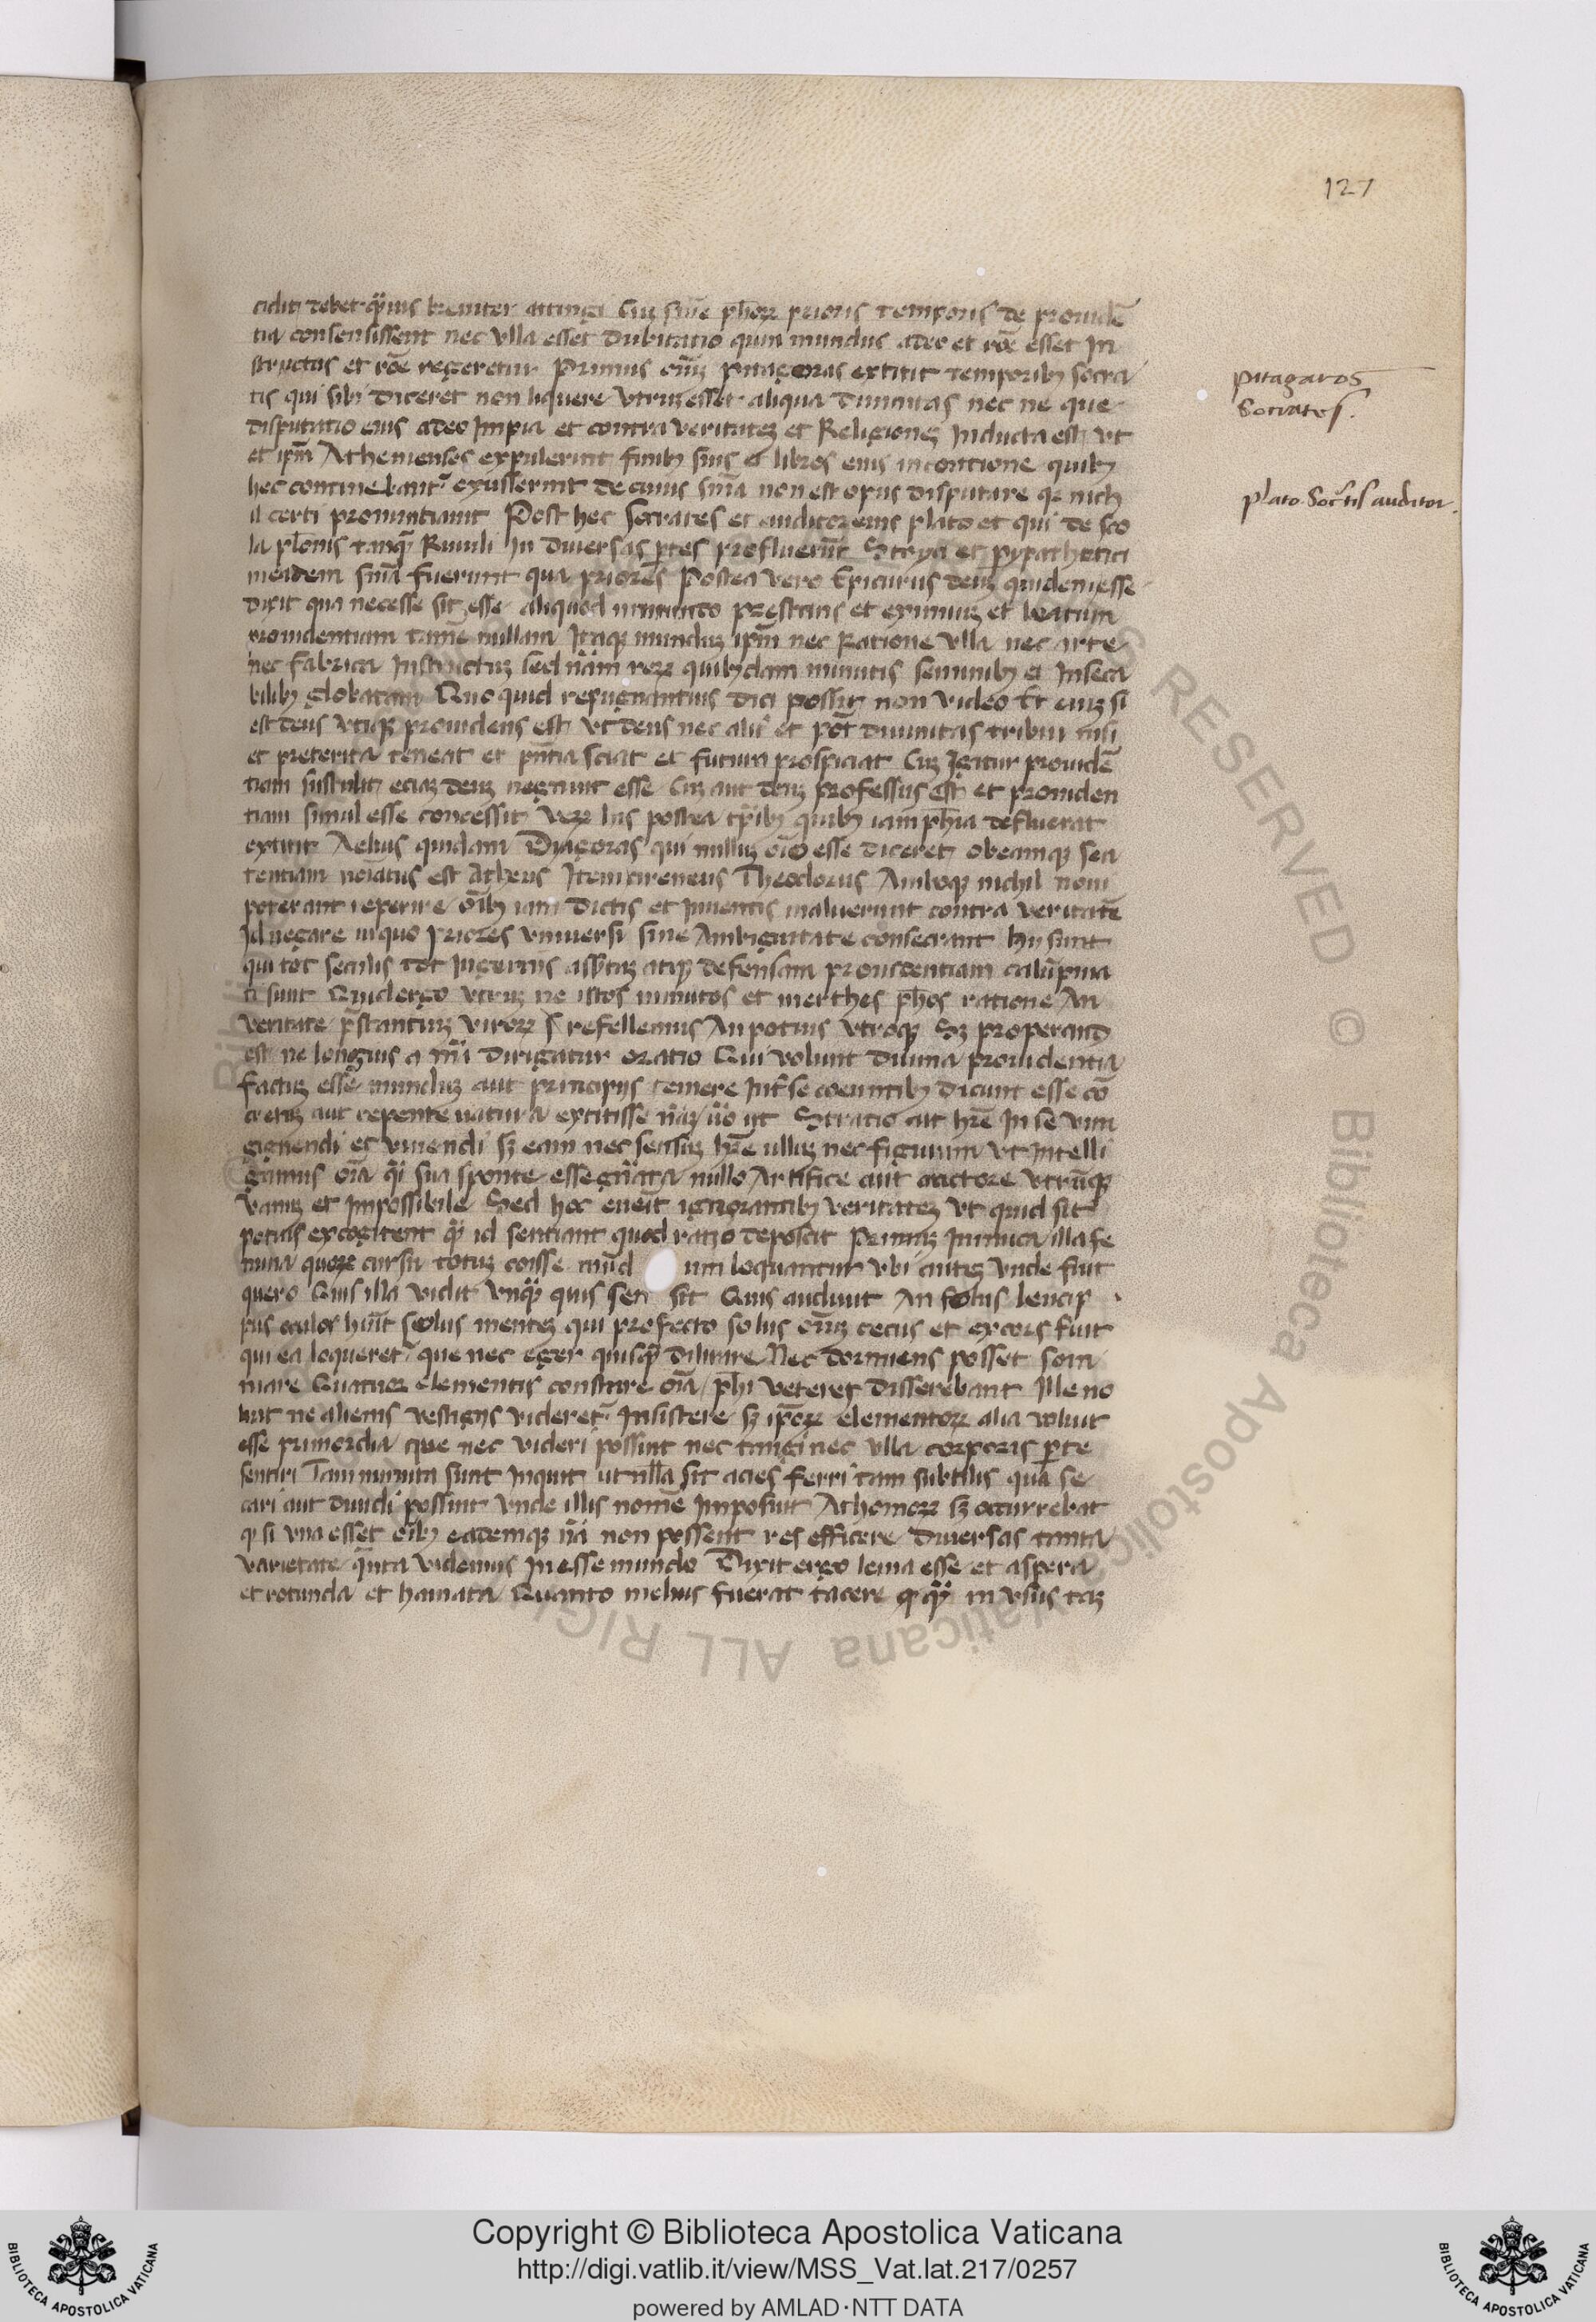 127
cidit debet qͣmuis breuiter attingi Cuꝫ sn̄ie ph̄oꝝ prioris temporis de prouidē
tia consensissent nec vlla esset dubitatio quin mundus a deo et rōe esset In
structus et rōe regeretur Primus om̄iꝫ pitagoras extitit temporibꝫ socra
tis qui sibi diceret non liquere vtruꝫ esset aliqua diuinitas nec ne que
disputatio eius adeo Impia et contra veritateꝫ et Religioneꝫ Inducta est vt
et ip̄m Athenienses expulerint finibꝫ suis et libros eius in contione quibꝫ
hec continebant᷑ exusserint de cuius sn̄ia non est opus disputare qꝛ nich
il certi pronuntiauit Post hec Socrates et auditor eius plato et qui de sco
la pl̄onis tanqꝫ Riuuli In diuersas ꝑtes profluerūt Stoyci et pypathetici
in eadem sn̄ia fuerunt qua priores Postea vero Epicurus deuꝫ quidem esse
dixit qua necesse sit esse aliquod in mundo prestans et eximiuꝫ et beatum
prouidentiam tamē nullam Itaqꝫ munduꝫ ip̄m nec Ratione vlla nec arte
nec fabrica Instructuꝫ sed nām reꝝ quibꝫdam minutis seminibꝫ et Inseca
bilibꝫ globatam Quo quid repugnantius dici possit non video Et cuꝫ si
est deus vtiqꝫ prouidens est vt deus nec alit᷑ ei pōt diuinitas tribui nisi
et preterita teneat et pn̄tia sciat et futura prospiciat Cuꝫ Igitur prouidē
tiam sustulit etiaꝫ deuꝫ negauit esse Cuꝫ aut deuꝫ professus est et prouiden
tiam simul esse concessit Veꝝ his postea tp̄ibꝫ quibꝫ iam ph̄ia defluerat
extitit Aelius quidam Dyagoras qui nulluꝫ oīo esse diceret obeamqꝫ sen
tentiam noīatus est Atheus Item cireneus Theodorus Amboqꝫ nichil noui
poterant reperire oībꝫ iam dictis et Inuentis maluerunt contra veritatē
Id negare in quo priores vniuersi sine Ambiguitate consecrant hij sunt
qui tot seculis tot Ingeniis assertaꝫ atqꝫ defensam prouidentiam calūpnia
ti sunt Quid ergo vtruꝫ ne istos minutos et inerthes ph̄os ratione An
veritate p̄stantiuꝫ viroꝝ refellemus An potius vtroqꝫ Sꝫ properand
est ne longius a mā dirigatur oratio Qui volunt diuina prouidentia
factuꝫ esse munduꝫ aut principijs temere Int᷑ se coeuntibꝫ dicunt esse cō
cretuꝫ aut repente natura extitisse nāꝫ vͦo ut Stratio ait hr̄e In se vim
gignendi et viuendi sꝫ eam nec sensuꝫ hr̄e ulluꝫ nec figuram vt Intelli
gamus oīa qͣsi sua sponte esse gn̄ata nullo Artifice aut auctore vtrūqꝫ
vanuꝫ et Impossibile Sed hoc euenit ignorantibꝫ veritateꝫ vt quid sit
potius excogitent qͣꝫ id sentiant quod ratio deposcit Primuꝫ Inimica illa se
mina quoꝝ cursu totuꝫ coisse mūd um loquuntur vbi aūteꝫ vnde fiut
quero Quis illa vidit vnqꝫ quis sen sit Quis audiuit An solus leucip
pus oculos huit solus menteꝫ qui profecto solus om̄iꝫ cecus et excors fuit
qui ea loqueret᷑ que nec eger quisqꝫ dilirare Nec dormiens posset som
niare Quatuor elementis constare oīa ph̄i veteres disserebant Ille no
luit ne alienis vestigijs videret᷑ Insistere sꝫ ip̄oꝝ elementoꝝ alia voluit
esse primordia que nec videri possint nec tangi nec vlla corporis ꝑte
sentiri Tam minuta sunt Inquit ut nll̄a sit acies ferri tam subtilis qua se
cari aut diuidi possint vnde illis nomē Imposuit Athomoꝝ sꝫ occurrebat
qꝫ si vna esset oībꝫ eademqꝫ nā non possent res efficere diuersas tanta
varietate qͣnta videmus Inesse mundo Dixit ergo leuia esse et aspera
et rotunda et hamata Quanto melius fuerat tacere qͣꝫ in vsus taꝫ
pitagaros
Socrates.
plato Socrͣtis auditor.
Copyright © Biblioteca Apostolica Vaticana
http://digi.vatlib.it/view/MSS_Vat.lat.217/0257
powered by AMLAD·NTT DATA
BIBLIOTECA APOSTOLICA VATICANA
BIBLIOTECA APOSTOLICA VATICANA